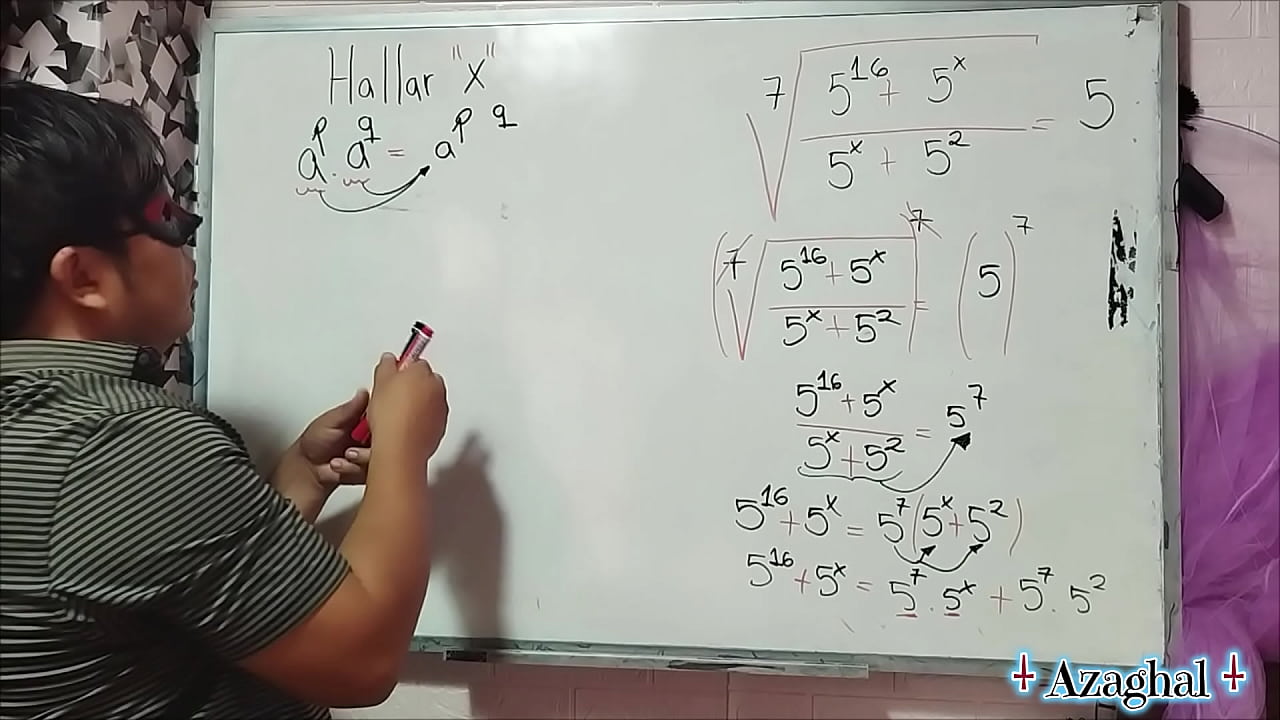 Hallar "x"
a^p . a^q = a^p q
⁷√((5^16 + 5^x)/(5^x + 5^2)) = 5
(⁷√((5^16 + 5^x)/(5^x + 5^2)))^7 = (5)^7
(5^16 + 5^x)/(5^x + 5^2) = 5^7
5^16 + 5^x = 5^7(5^x + 5^2)
5^16 + 5^x = 5^7 . 5^x + 5^7 . 5^2
Azaghal